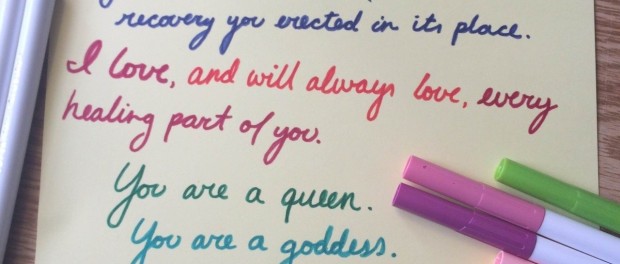 recovery you erected in its place.
I love, and will always love, every
healing part of you.
You are a queen.
You are a goddess.